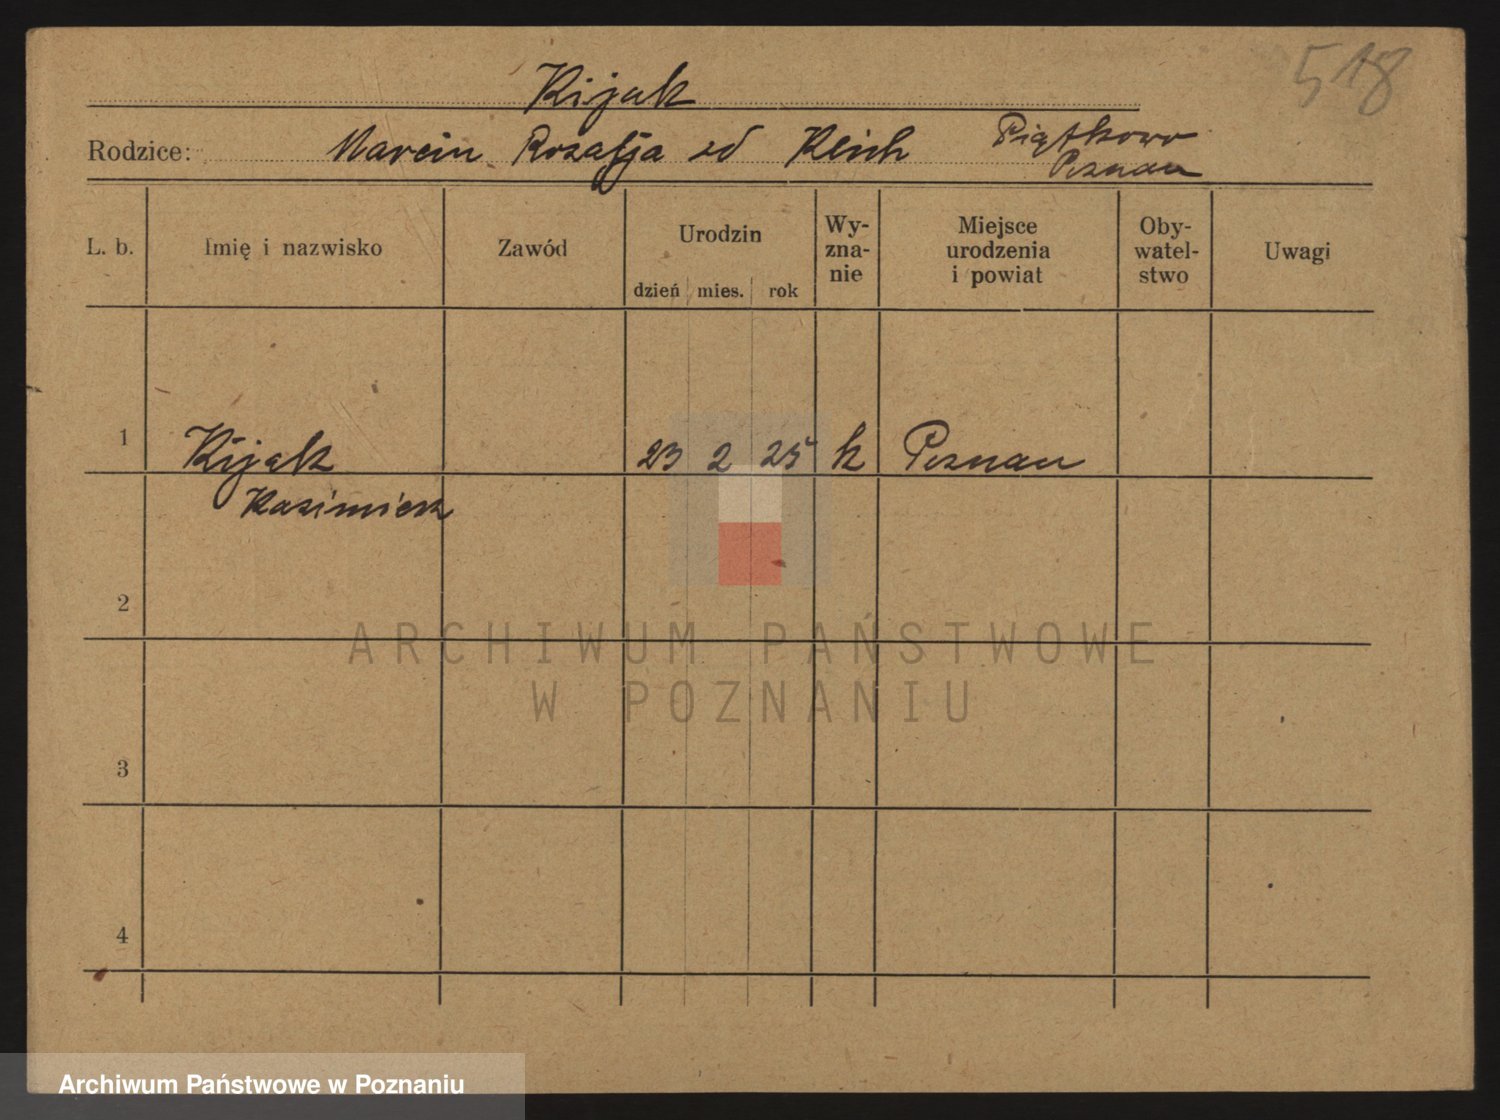 518
Kijak
Rodzice: Marcin Rozalja zd Kleich Piątkowo
Poznan
L. b. Imię i nazwisko Zawód Urodzin Wy-
zna-
nie Miejsce
urodzenia
i powiat Oby-
watel-
stwo Uwagi
dzień mies. rok
1 Kijak 23 2 25 k Poznan
Kazimierz
2
ARCHIWUM PAŃSTWOWE
W POZNANIU
3
4
Archiwum Państwowe w Poznaniu